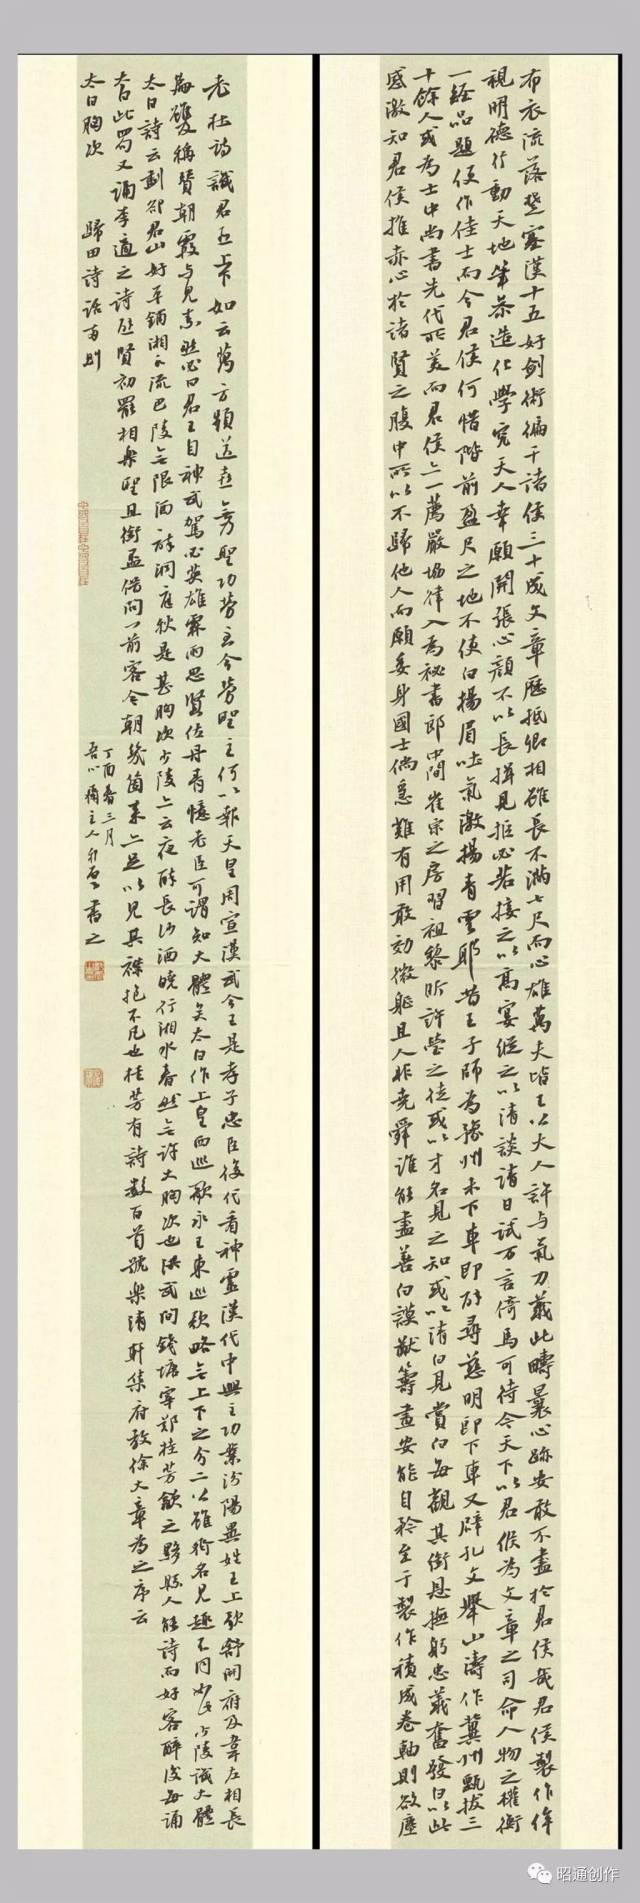 布衣流落楚漢十五好劍術徧干諸侯三十成文章歷抵卿相雖長不滿七尺而心雄萬夫皆王公大人許与氣義此疇曩心跡安敢不盡於君侯哉君侯製作侔
視明德行動天地筆參造化學究天人幸願開張心顏不以長揖見拒必若接之以高宴縱之以清談請日試万言倚馬可待今天下以君侯為文章之司命人物之權衡
一經品題便作佳士而今君侯何惜階前盈尺之地不使白揚眉吐氣激揚青雲耶昔王子師為豫州未下車即辟荀慈明即下車又辟孔文舉山濤作冀州甄拔三
十餘人或為士中尚書先代所美而君侯亦一薦嚴協律入為秘書郎中間崔宗之房習祖黎昕許瑩之徒或以才名見知或以清白見賞白每觀其銜恩撫躬忠義奮發白以此
感激知君侯推赤心於諸賢之腹中所以不歸他人而願委身國士倘急難有用敢効微軀且人非堯舜誰能盡善白謨猷籌畫安能自矜至于製作積成卷軸則欲塵
老杜詩識君臣上下如云萬方頻送喜無聖功勞至今勞聖主何以報天皇周宣漢武今王是孝子忠臣後代看神靈漢代中興主功業汾陽異姓王上欲舒開府及韋左相長
篇雖稱贊朝霞与見素然必曰君王自神武駕必英雄霖雨思賢佐丹青憶老臣可謂知大體矣太白作上皇西巡歌永王東巡歌略無上下之分二公雖齊名見趣不同如此少陵識大體
太白詩云剗卻君山好平鋪湘水流巴陵無限酒醉洞庭秋是甚胸次少陵亦云夜醉長沙酒曉行湘水春然無許大胸次也洪武間錢塘宰鄭桂芳飲之黟縣人能詩而好客醉後每誦
太白此句又誦李適之詩避賢初罷相樂聖且銜盃借問门前客今朝幾箇來亦足以見其襟抱不凡也桂芳有詩數百首號樂清軒集府教徐大章為之序云
太白胸次　歸田詩話兩則
丁酉春三月
書之
昭通创作